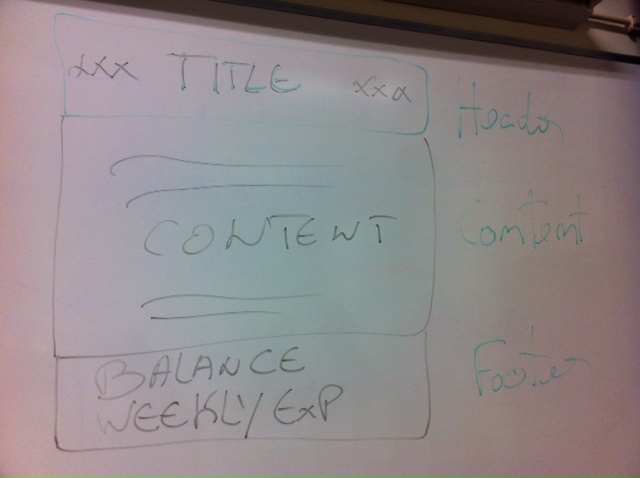 xxx TITLE xxx
Header
CONTENT
Content
BALANCE
WEEKLY EXP
Footer